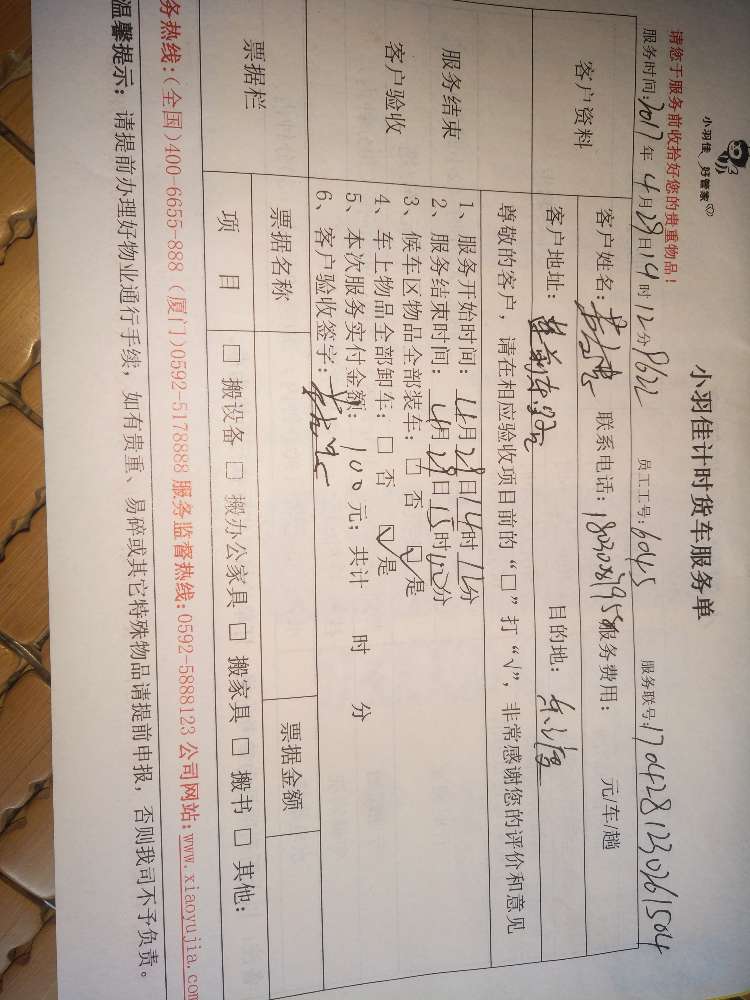 小羽佳 好管家
小羽佳计时货车服务单
请您于服务前收拾好您的贵重物品!
服务时间:2017年4月28日14时12分 员工工号:6045 服务联号:1704281230261504
客户资料
客户姓名: 联系电话: 服务费用: 元/车/趟
客户地址: 目的地:
尊敬的客户,请在相应验收项目前的“□”打“√”,非常感谢您的评价和意见
服务结束
客户验收
1、服务开始时间:4月28日14时12分
2、服务结束时间:4月28日15时02分
3、候车区物品全部装车:□ 否 ☑ 是
4、车上物品全部卸车:□ 否 ☑ 是
5、本次服务实付金额:100元;共计 时 分
6、客户验收签字:
票据栏
票据名称 票据金额
项 目 □ 搬设备 □ 搬办公家具 □ 搬家具 □ 搬书 □ 其他:
务热线:(全国)400-6655-888 (厦门)0592-5178888 服务监督热线:0592-5888123 公司网站:www.xiaoyujia.com
温馨提示:请提前办理好物业通行手续,如有贵重、易碎或其它特殊物品请提前申报,否则我司不予负责。